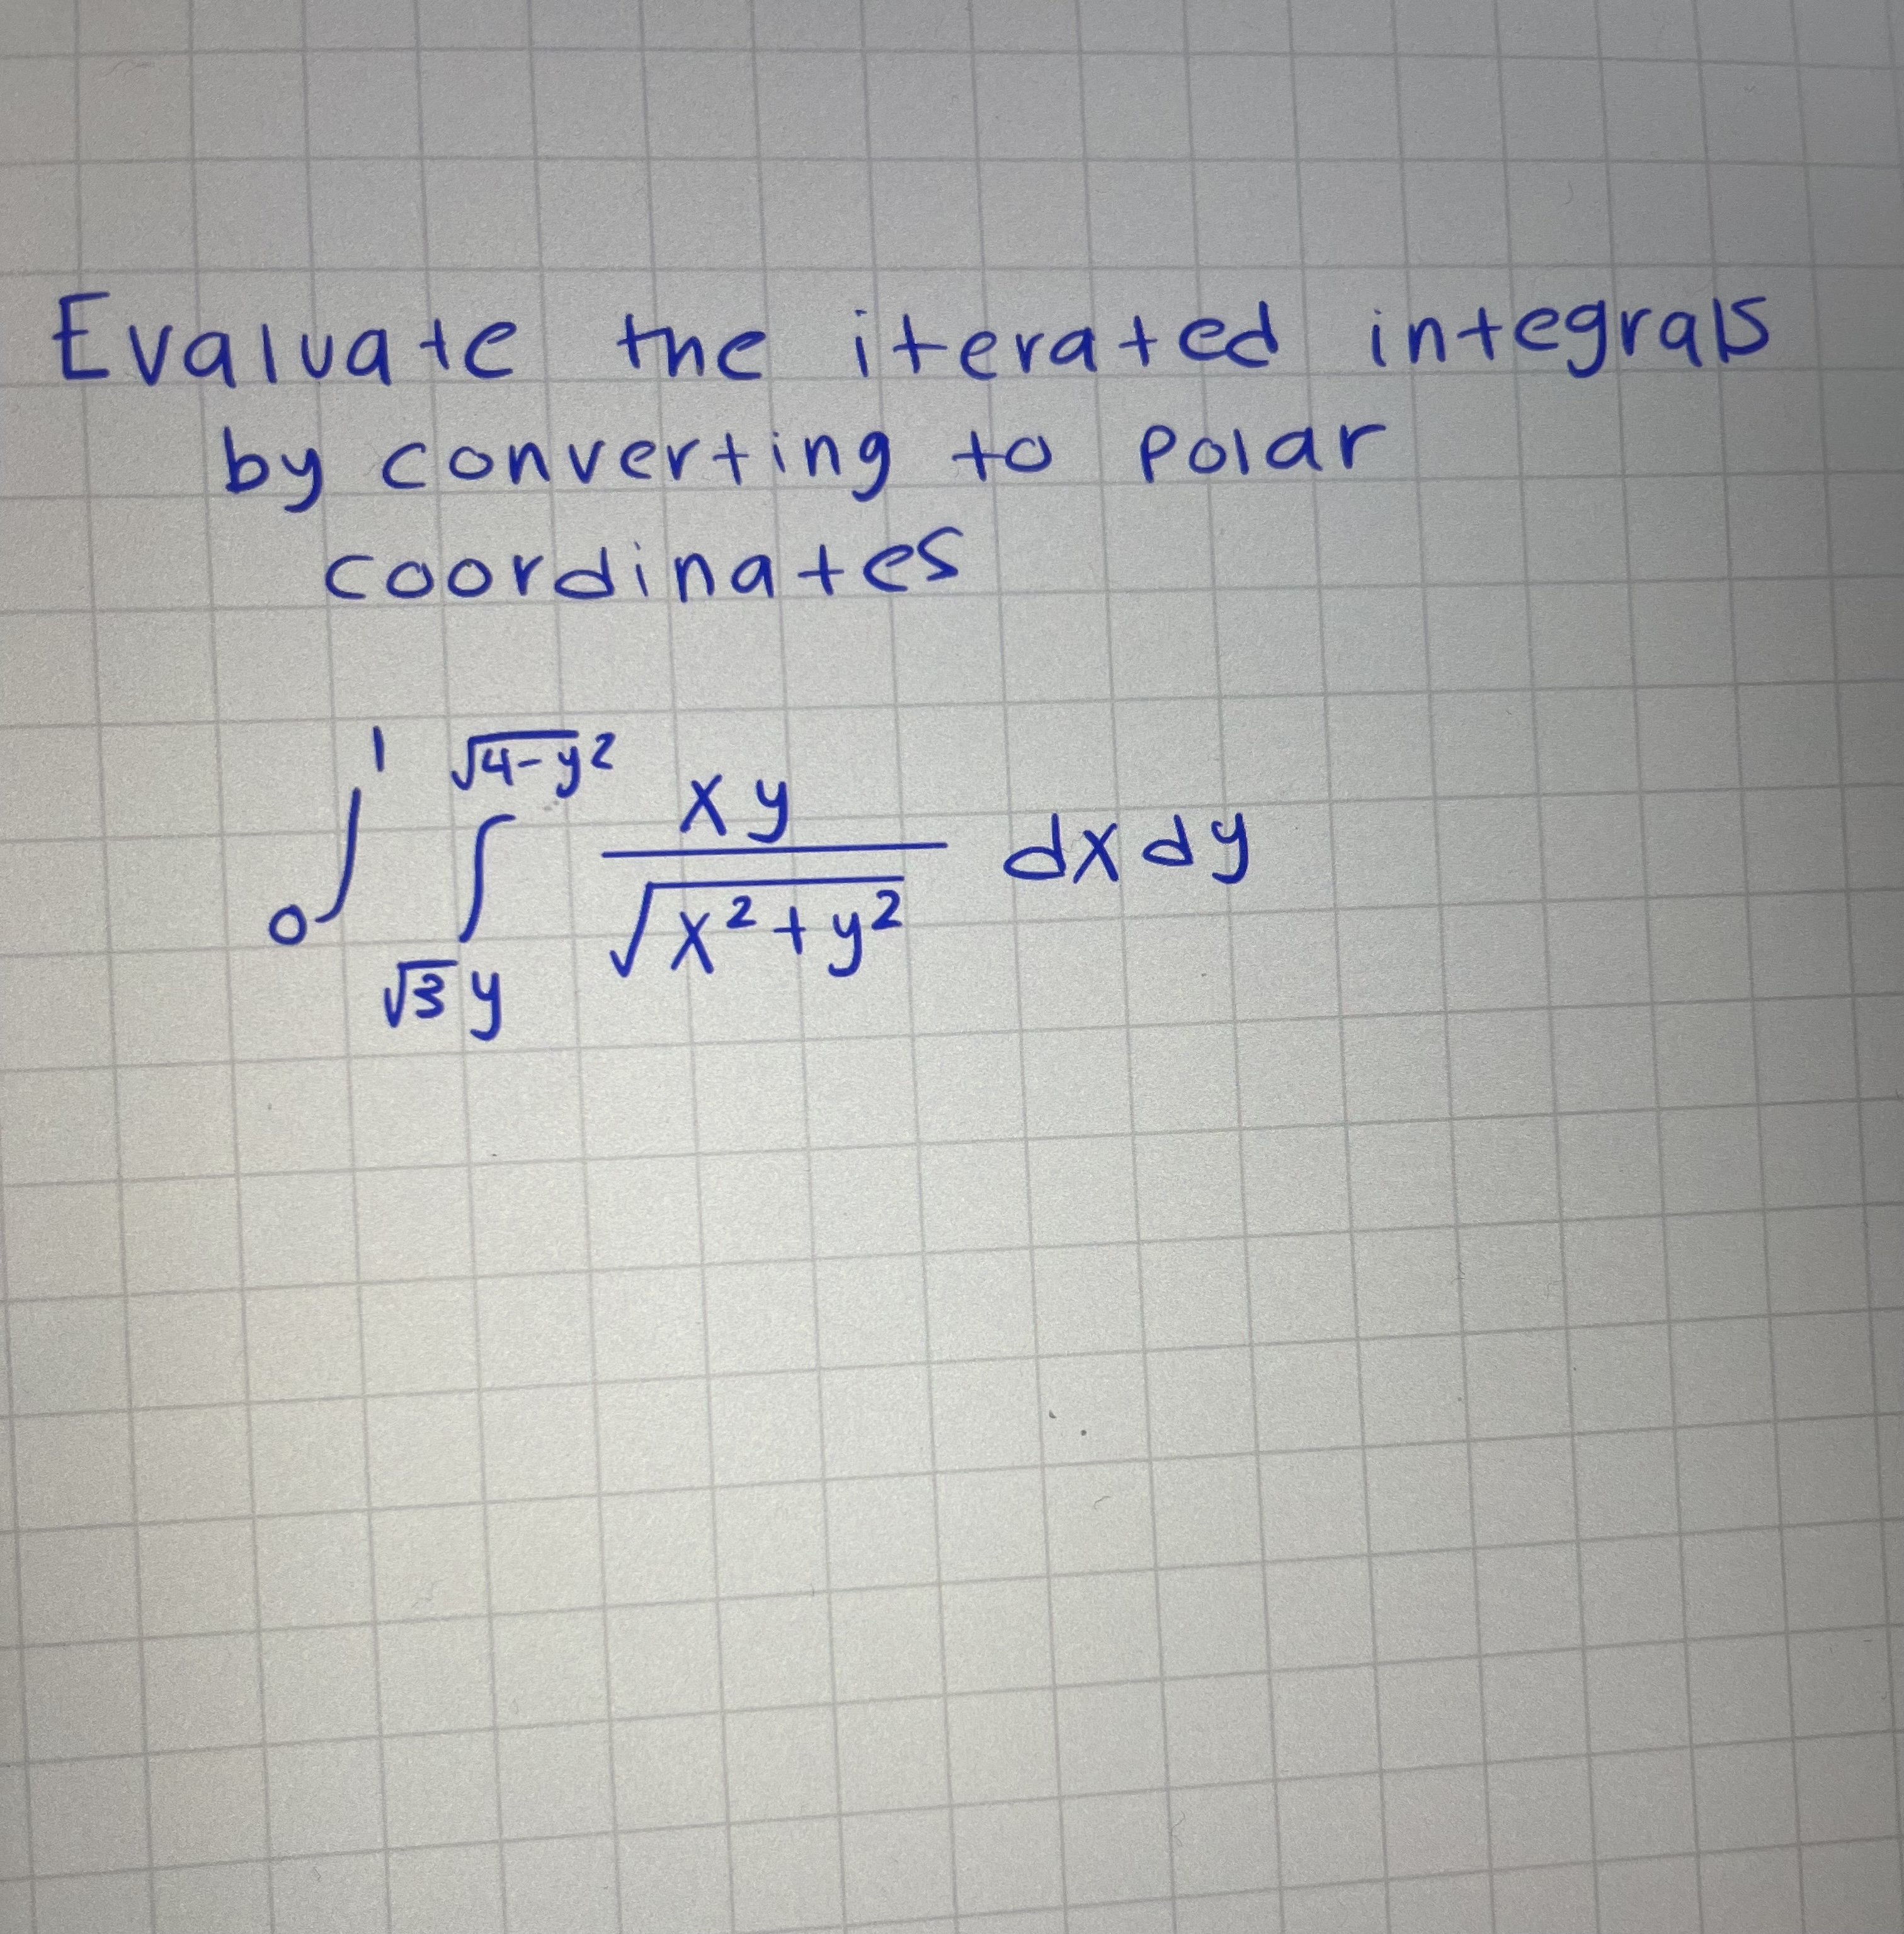 Evaluate the iterated integrals
by converting to polar
coordinates
∫₀¹ ∫_{√3 y}^{√(4-y²)} xy / √(x² + y²) dx dy